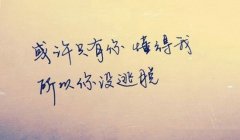 或许只有你 懂得我
所以你没逃脱